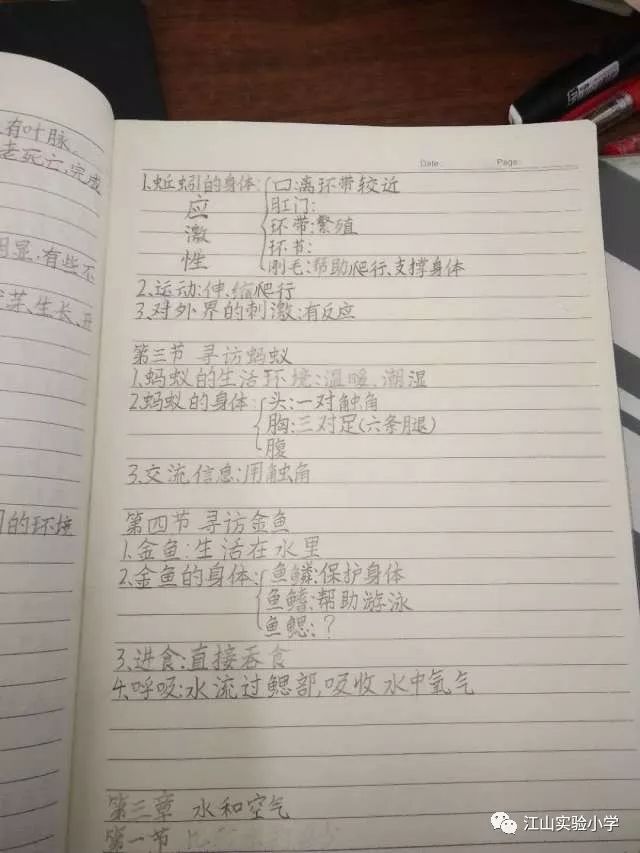 有叶脉、
老死亡,完成
明显,有些不
芽、生长、开
的环境
Date: Page:
1.蚯蚓的身体:口:离环带较近
应 肛门:
激 环带:繁殖
性 环节:
刚毛:帮助爬行、支撑身体
2.运动:伸、缩爬行
3.对外界的刺激:有反应
第三节 寻访蚂蚁
1.蚂蚁的生活环境:温暖、潮湿
2.蚂蚁的身体:头:一对触角
胸:三对足(六条腿)
腹
3.交流信息:用触角
第四节 寻访金鱼
1.金鱼:生活在水里
2.金鱼的身体:鱼鳞:保护身体
鱼鳍:帮助游泳
鱼鳃:?
3.进食:直接吞食
4.呼吸:水流过鳃部,吸收水中氧气
第三章 水和空气
第一节
江山实验小学